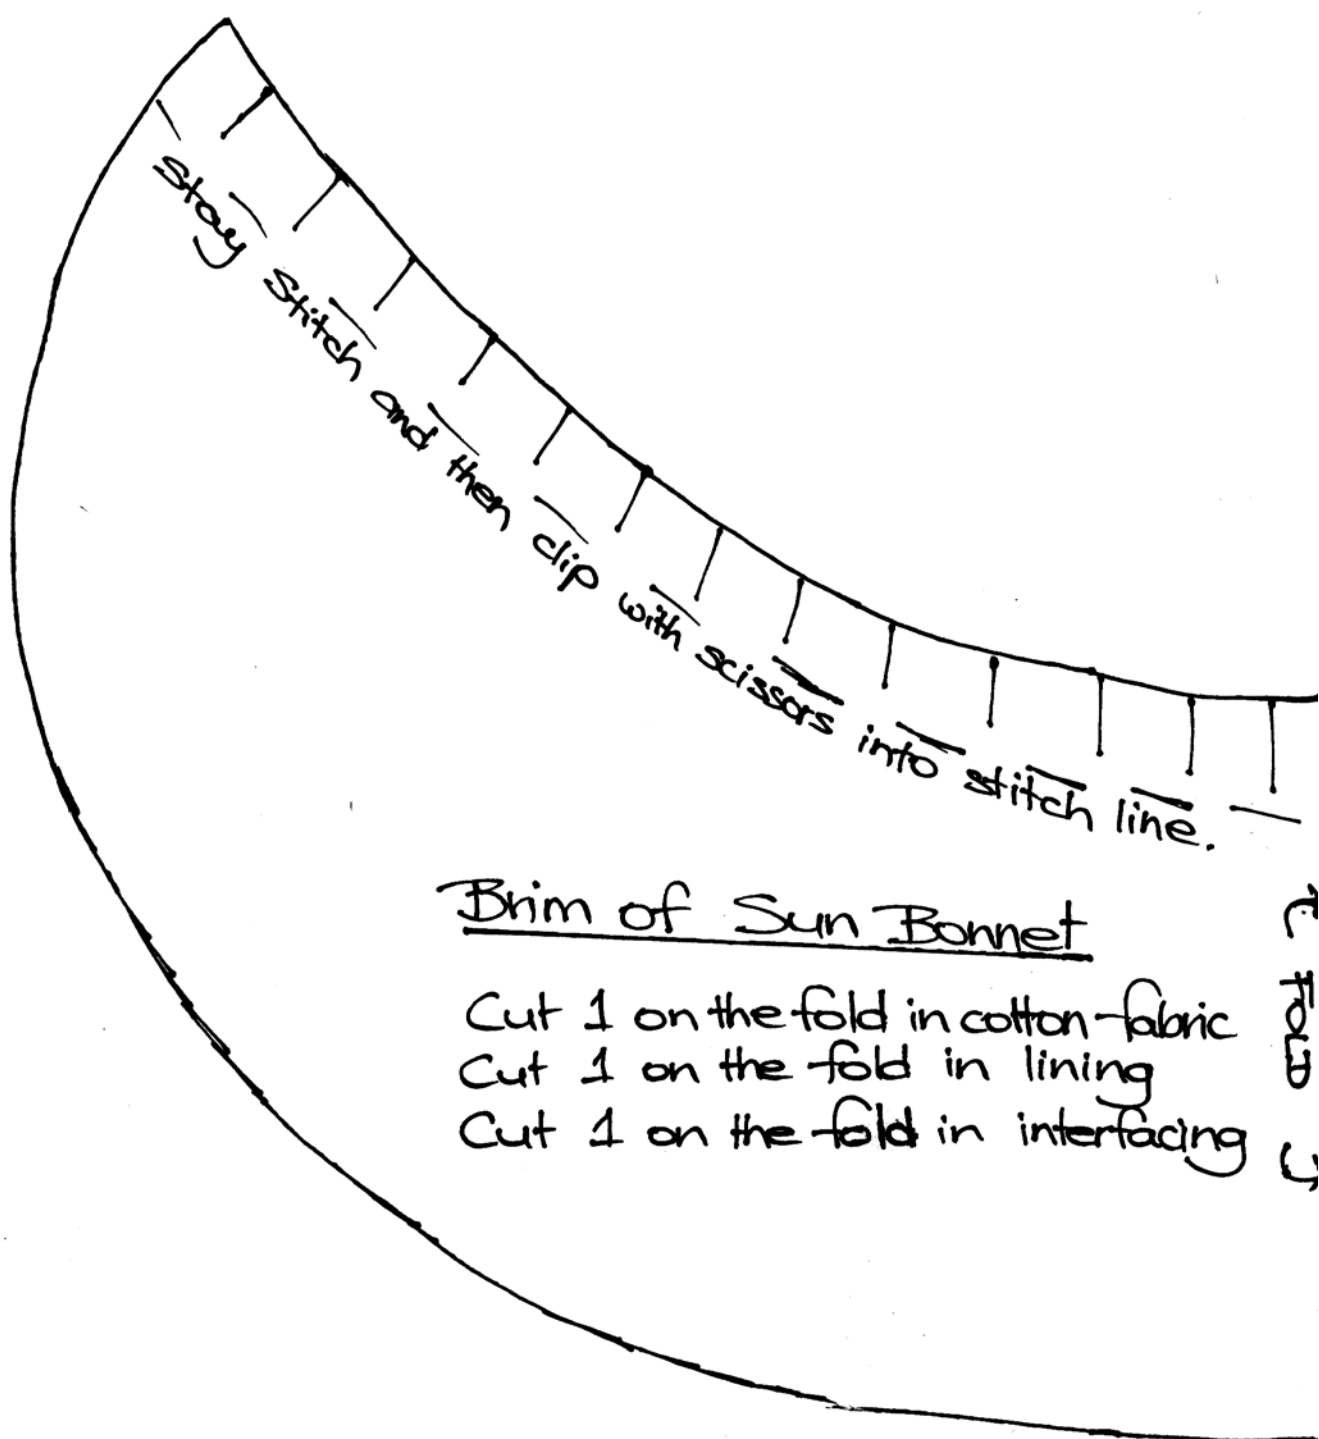 Stay Stitch and then clip with scissors into stitch line.
Brim of Sun Bonnet
Cut 1 on the fold in cotton fabric
Cut 1 on the fold in lining
Cut 1 on the fold in interfacing
FOLD